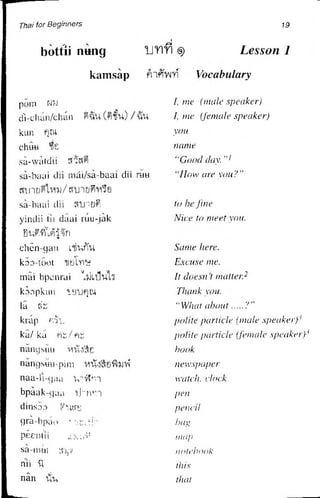 Thai for Beginners 19
bòttîi nùng บทที่ ๑ Lesson 1
kamsàp คำศัพท์ Vocabulary
pǒm ผม I, me (male speaker)
dì-chán/chán ดิฉัน (ดีฉัน) / ฉัน I, me (female speaker)
kun คุณ you
chûu ชื่อ name
sà-wàtdii สวัสดี "Good day."1
sà-baai dii mái/sà-baai dii rǔu "How are you?"
สบายดีไหม/สบายดีหรือ
sà-baai dii สบายดี to be fine
yindii tîi dâai rúu-jàk Nice to meet you.
ยินดีที่ได้รู้จัก
chên-gan เช่นกัน Same here.
kɔ̌ɔ-tôot ขอโทษ Excuse me.
mâi bpenrai ไม่เป็นไร It doesn't matter.2
kɔ̀ɔpkun ขอบคุณ Thank you.
lâ ล่ะ "What about .....?"
kráp ครับ polite particle (male speaker)3
ká/ kâ คะ/ค่ะ polite particle (female speaker)4
nǎngsǔu หนังสือ book
nǎngsǔu-pim หนังสือพิมพ์ newspaper
naa-lí-gaa นาฬิกา watch, clock
bpàak-gaa ปากกา pen
dinsɔ̌ɔ ดินสอ pencil
grà-bpǎo กระเป๋า bag
pɛ̌ɛntîi แผนที่ map
sà-mùt สมุด notebook
níi นี่ this
nân นั่น that